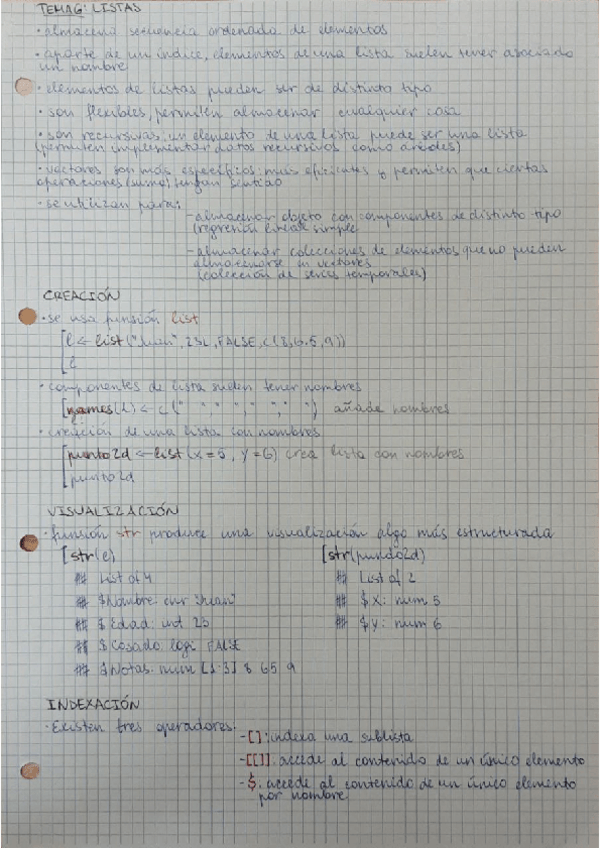 TEMA6: LISTAS
· almacena secuencia ordenada de elementos
· aparte de un índice, elementos de una lista suelen tener asociado
un nombre
· elementos de listas pueden ser de distinto tipo
· son flexibles, permiten almacenar cualquier cosa
· son recursivas: un elemento de una lista puede ser una lista
(permiten implementar datos recursivos como árboles)
· vectores son más específicos: más eficientes y permiten que ciertas
operaciones (suma) tengan sentido
· se utilizan para:
- almacenar objeto con componentes de distinto tipo
(regresión lineal simple
- almacenar colecciones de elementos que no pueden
almacenarse en vectores
(colección de series temporales)
CREACIÓN
· se usa función list
[l <- list("Juan", 23L, FALSE, c(8, 6.5, 9))
l
· componentes de lista suelen tener nombres
[names(l) <- c(" " " " " " " ") añade nombres
· creación de una lista con nombres
[punto2d <- list(x=5, y=6) crea lista con nombres
punto2d
VISUALIZACIÓN
· función str produce una visualización algo más estructurada
[str(l)
## List of 4
## $Nombre: chr "Juan"
## $Edad: int 23
## $Casado: logi FALSE
## $Notas: num [1:3] 8 6.5 9
[str(punto2d)
## List of 2
## $x: num 5
## $y: num 6
INDEXACIÓN
· Existen tres operadores:
- []: indexa una sublista
- [[]]: accede al contenido de un único elemento
- $: accede al contenido de un único elemento
por nombre